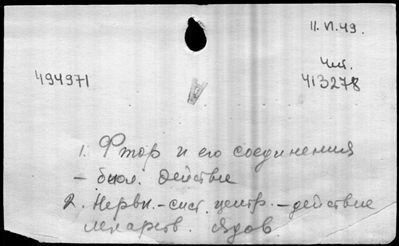 11.VI.49.
Чит.
494971
413278
1. Фтор и его соединения
– биол. действие
2. Нервн.-сист. центр. – действие
лекарств. ядов.